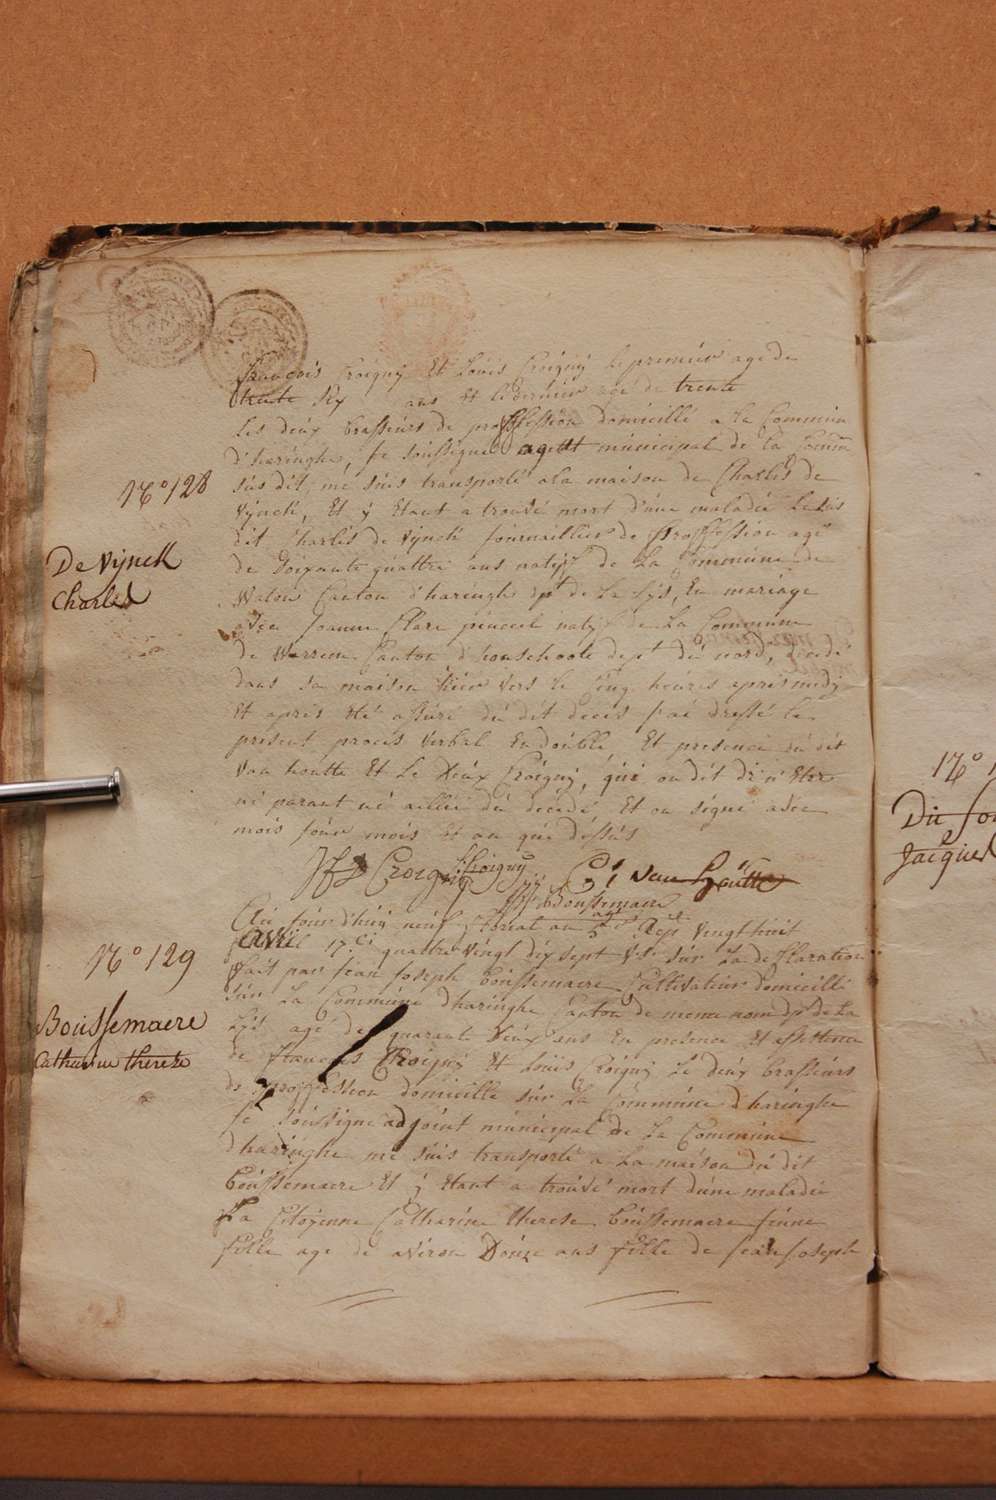 francois Croigny Et Louis Croigny le premier age de
trente six ans et le dernier age de trente
les deux brasseurs de proffession domicillé a la Commune
d'haringhe, je soussigné agent municipal de la Comm
sus dit, me suis transporté a la maison de Charles de
N° 128
vynck, Et y Etant a trouvé mort d'une maladie le sus
De Vynck
Charles
dit Charles de vynck journaillier de proffession agé
de soixante quattre ans natif de La Commune de
Watou Canton d'haringhe dpt de La Lys, En mariage
avec joanne Clare natif de La Commune
de Warrem Canton d'honschoote dept du nord, decedé
dans sa maison hier vers le cinq heures apres midy
Et apres été assuré du dit deces j'ai dressé le
present proces verbal En double Et presence du dit
van houtte Et Le deux Croigny, qui on dit de n'Etre
ni parant ni allié du decedé Et on signé avec
mois jour mois Et an que dessus
Croigny L Croigny van houtte
J J Boussemaere
agt
N° 129
Au jour d'huy neuf floreal an 5e Rep. vingt huit
avril 17.. quattre vingt dix sept v.s. sur La desclaration
fait par jean joseph boussemaere Cultivateur domicillé
Boussemaere
Catharine therese
sur La Commune d'haringhe Canton de meme nom dpt de La
Lys agé de quarante deux ans En presence Et assistence
de francois Croigny Et Louis Croigny Le deux brasseurs
de proffession domicille sur La Commune d'haringhe
je soussigné adjoint municipal de La Commune
d'haringhe me suis transporté a La maison du dit
boussemaere Et y Etant a trouvé mort d'une maladie
La Citoyenne Catharine therese boussemaere jeune
fille age de aviron Douze ans fille de jean joseph
N° 1
Du fo
Jacques